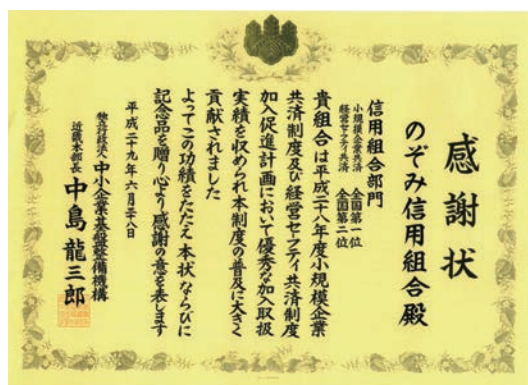 感謝状
のぞみ信用組合殿
信用組合部門
小規模企業共済 全国第一位
経営セーフティ共済 全国第二位
貴組合は平成二十八年度小規模企業
共済制度及び経営セーフティ共済制度
加入促進計画において優秀な加入取扱
実績を収められ本制度の普及に大きく
貢献されました
よってこの功績をたたえ本状ならびに
記念品を贈り心より感謝の意を表します
平成二十九年六月二八日
独立行政法人中小企業基盤整備機構
近畿本部長 中島龍三郎